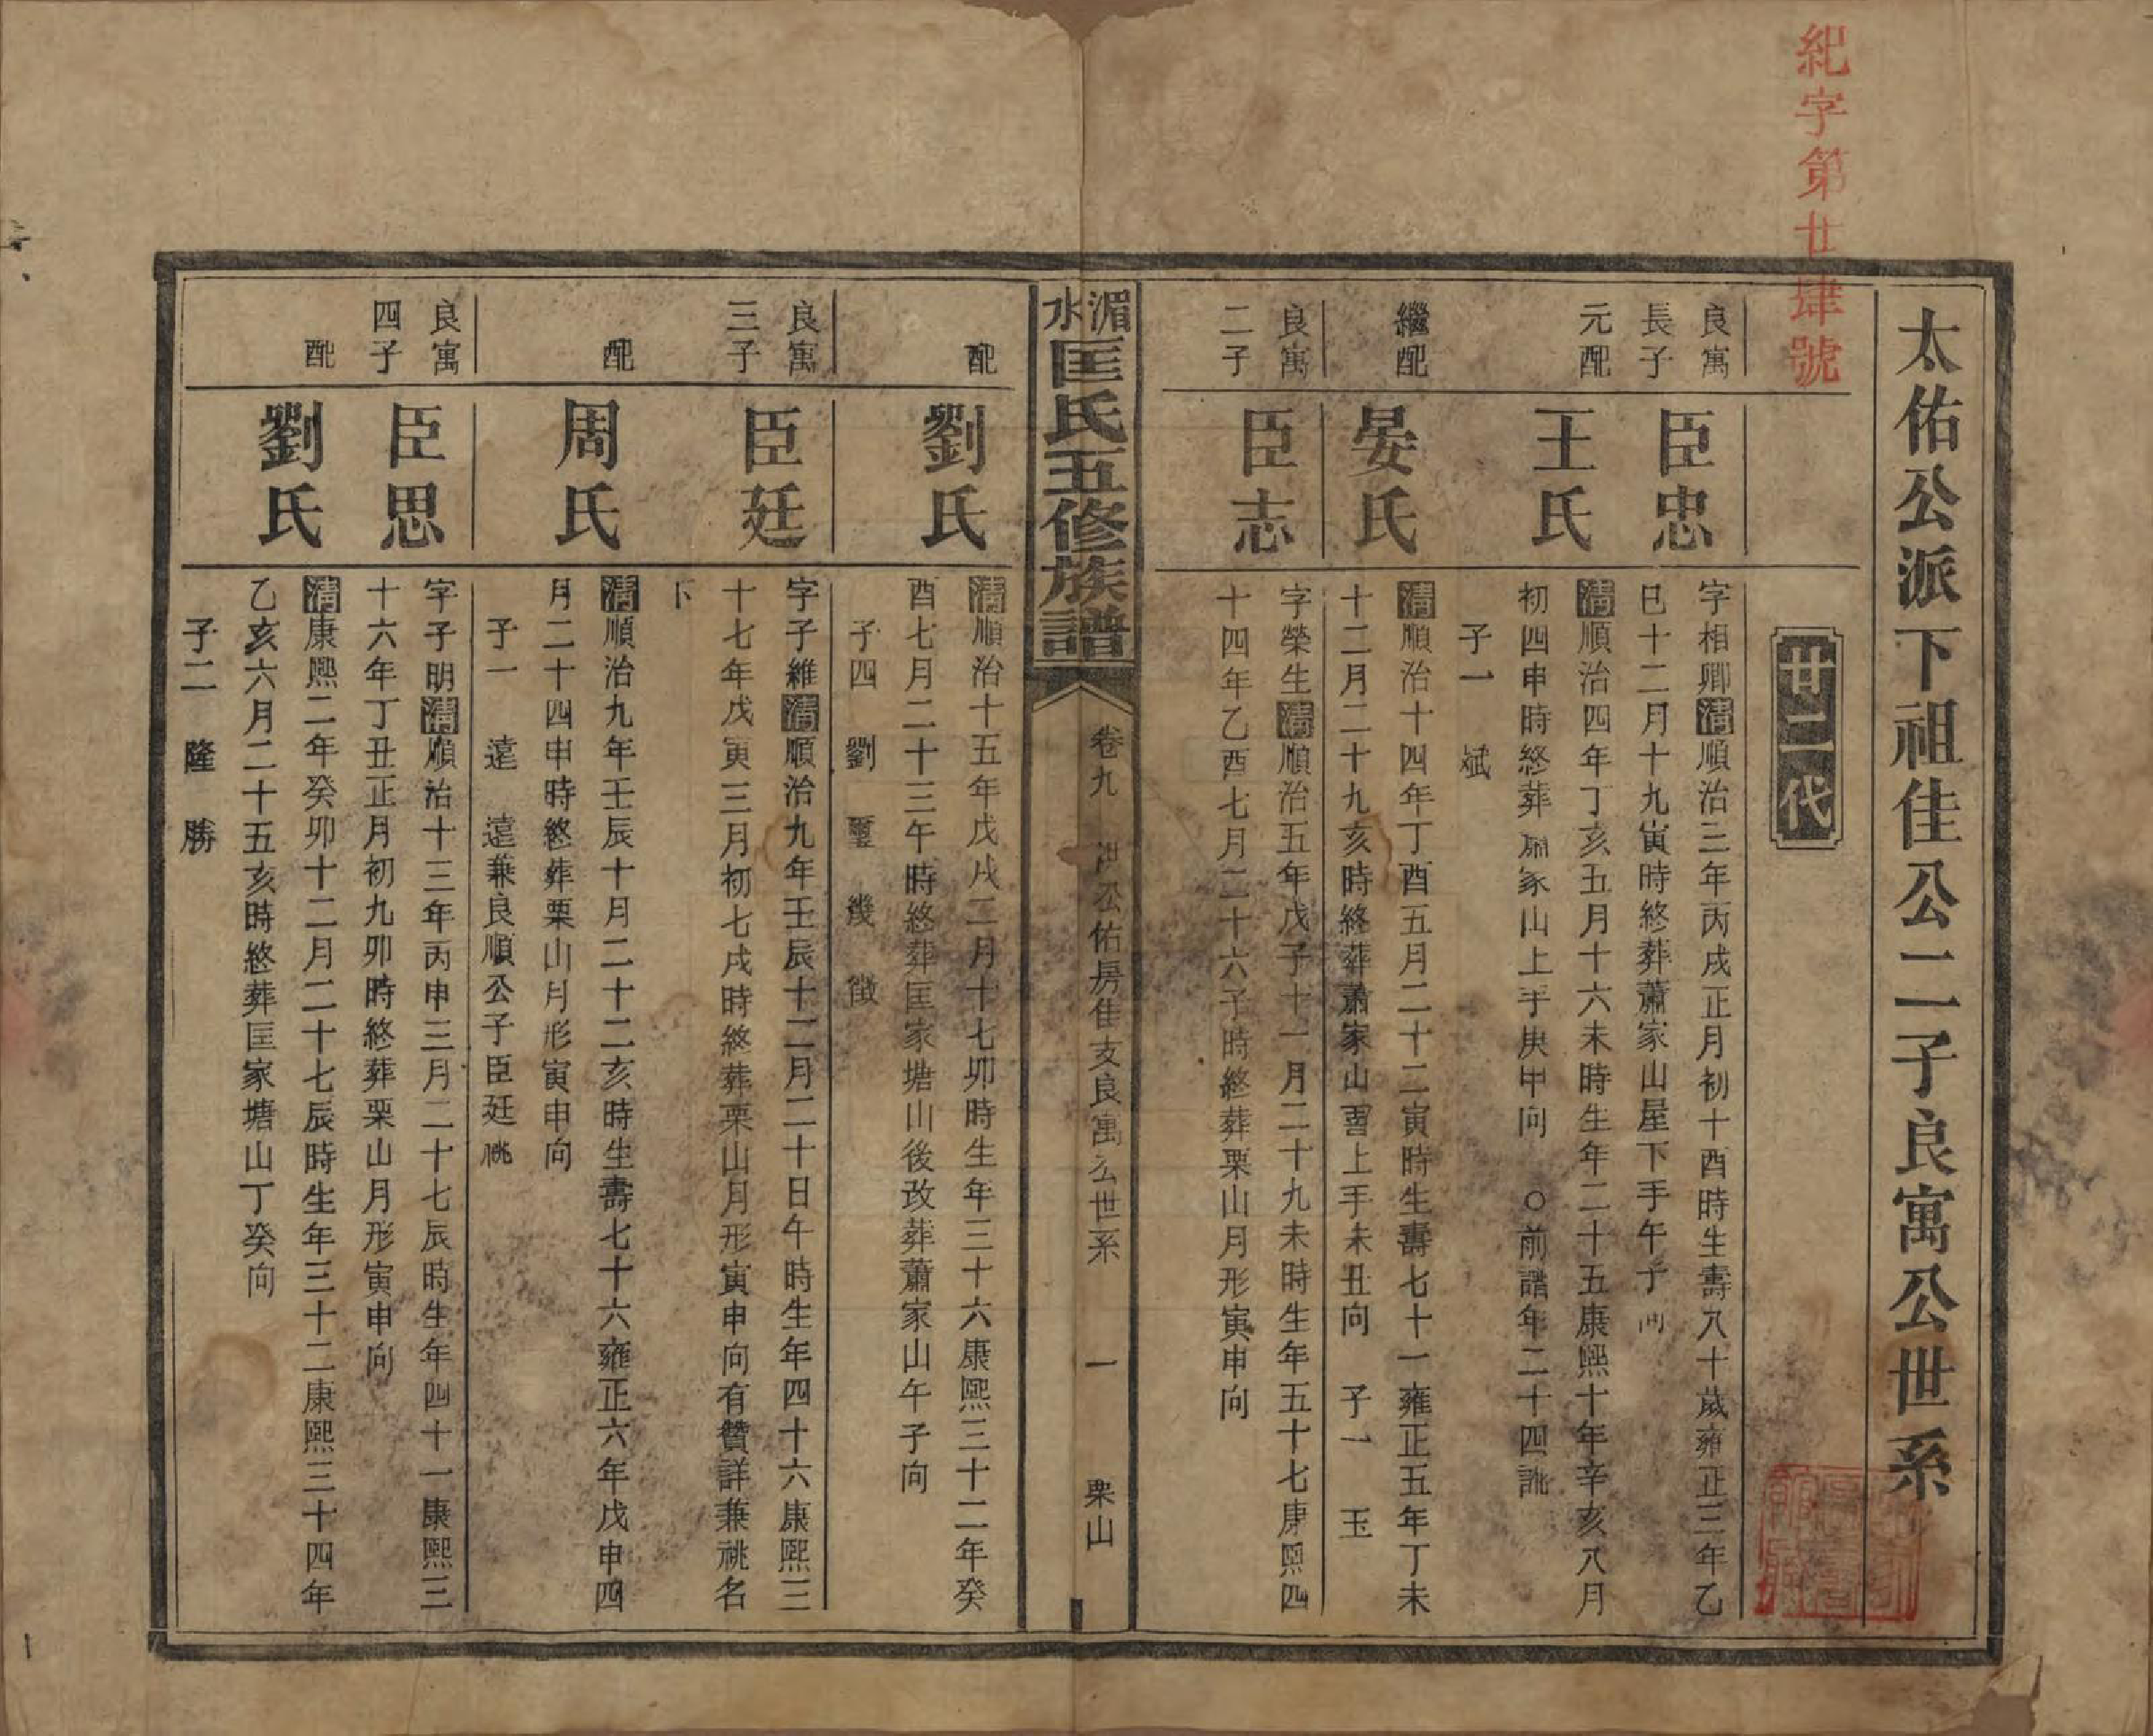 紀字第廿肆號
太佑公派下祖佳公二子良寓公世系
廿二代
良寓
長子
臣忠
字相卿清順治三年丙戌正月初十酉時生壽八十歲雍正三年乙
巳十二月十九寅時終葬蕭家山屋下手午子向
元配
王氏
清順治四年丁亥五月十六未時生年二十五康熙十年辛亥八月
初四申時終葬家山上手庚甲向 ○前譜年二十四訛
子一 斌
繼配
晏氏
清順治十四年丁酉五月二十二寅時生壽七十一雍正五年丁未
十二月二十九亥時終葬蕭家山上手未丑向 子一 玉
良寓
二子
臣志
字榮生清順治五年戊子十一月二十九未時生年五十七康熙四
十四年乙酉七月二十六子時終葬栗山月形寅申向
湄水匡氏五修族譜
卷九
公佑房佳支良寓公世系
一
栗山
配
劉氏
清順治十五年戊戌二月十七卯時生年三十六康熙三十二年癸
酉七月二十三午時終葬匡家塘山後改葬蕭家山午子向
子四 劉 璽 幾 徵
良寓
三子
臣廷
字子維清順治九年壬辰十二月二十日午時生年四十六康熙三
十七年戊寅三月初七戌時終葬栗山月形寅申向有贊詳兼祧名
下
配
周氏
清順治九年壬辰十月二十二亥時生壽七十六雍正六年戊申四
月二十四申時終葬栗山月形寅申向
子一 遠 遠兼良順公子臣廷祧
良寓
四子
臣思
字子明清順治十三年丙申三月二十七辰時生年四十一康熙三
十六年丁丑正月初九卯時終葬栗山月形寅申向
配
劉氏
清康熙二年癸卯十二月二十七辰時生年三十二康熙三十四年
乙亥六月二十五亥時終葬匡家塘山丁癸向
子二 隆 勝